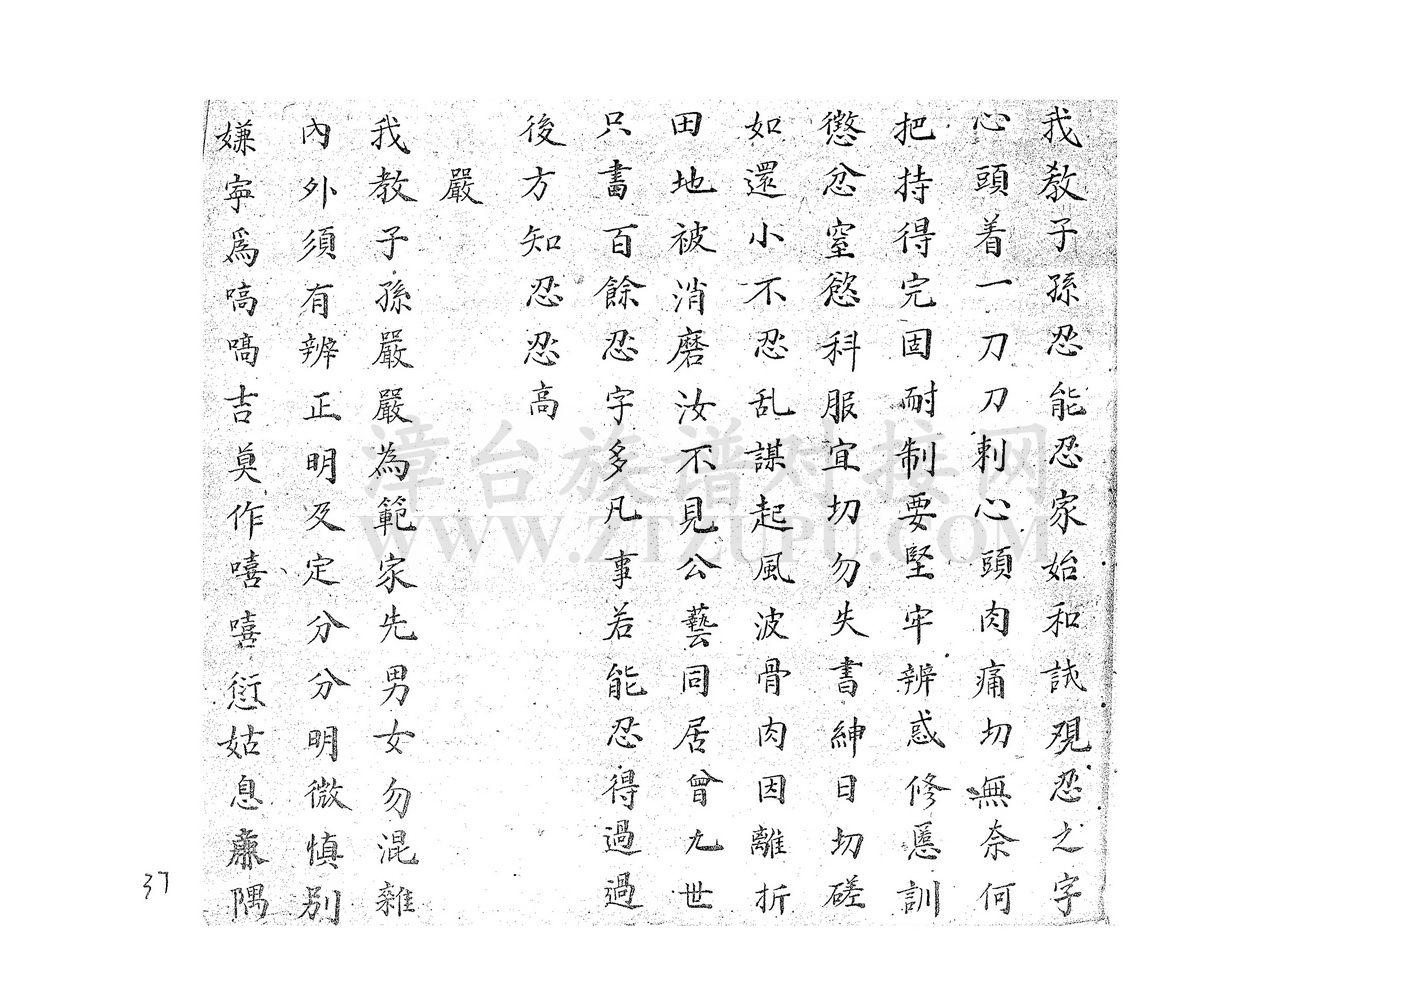 我教子孫忍能忍家始和誠覌忍之字
心頭着一刀刀刺心頭肉痛切無奈何
把持得完固耐制要堅牢辨惑修慝訓
懲忿窒慾科服宜切勿失書紳日切磋
如還小不忍乱謀起風波骨肉因離折
田地被消磨汝不見公藝同居曾九世
只書百餘忍字多凡事若能忍得過過
後方知忍忍高
嚴
我教子孫嚴嚴為範家先男女勿混雜
內外須有辨正明及定分分明微慎別
嫌寧爲嗃嗃吉莫作嘻嘻愆姑息廉隅
漳台族谱对接网
WWW.ZTZUPU.COM
37